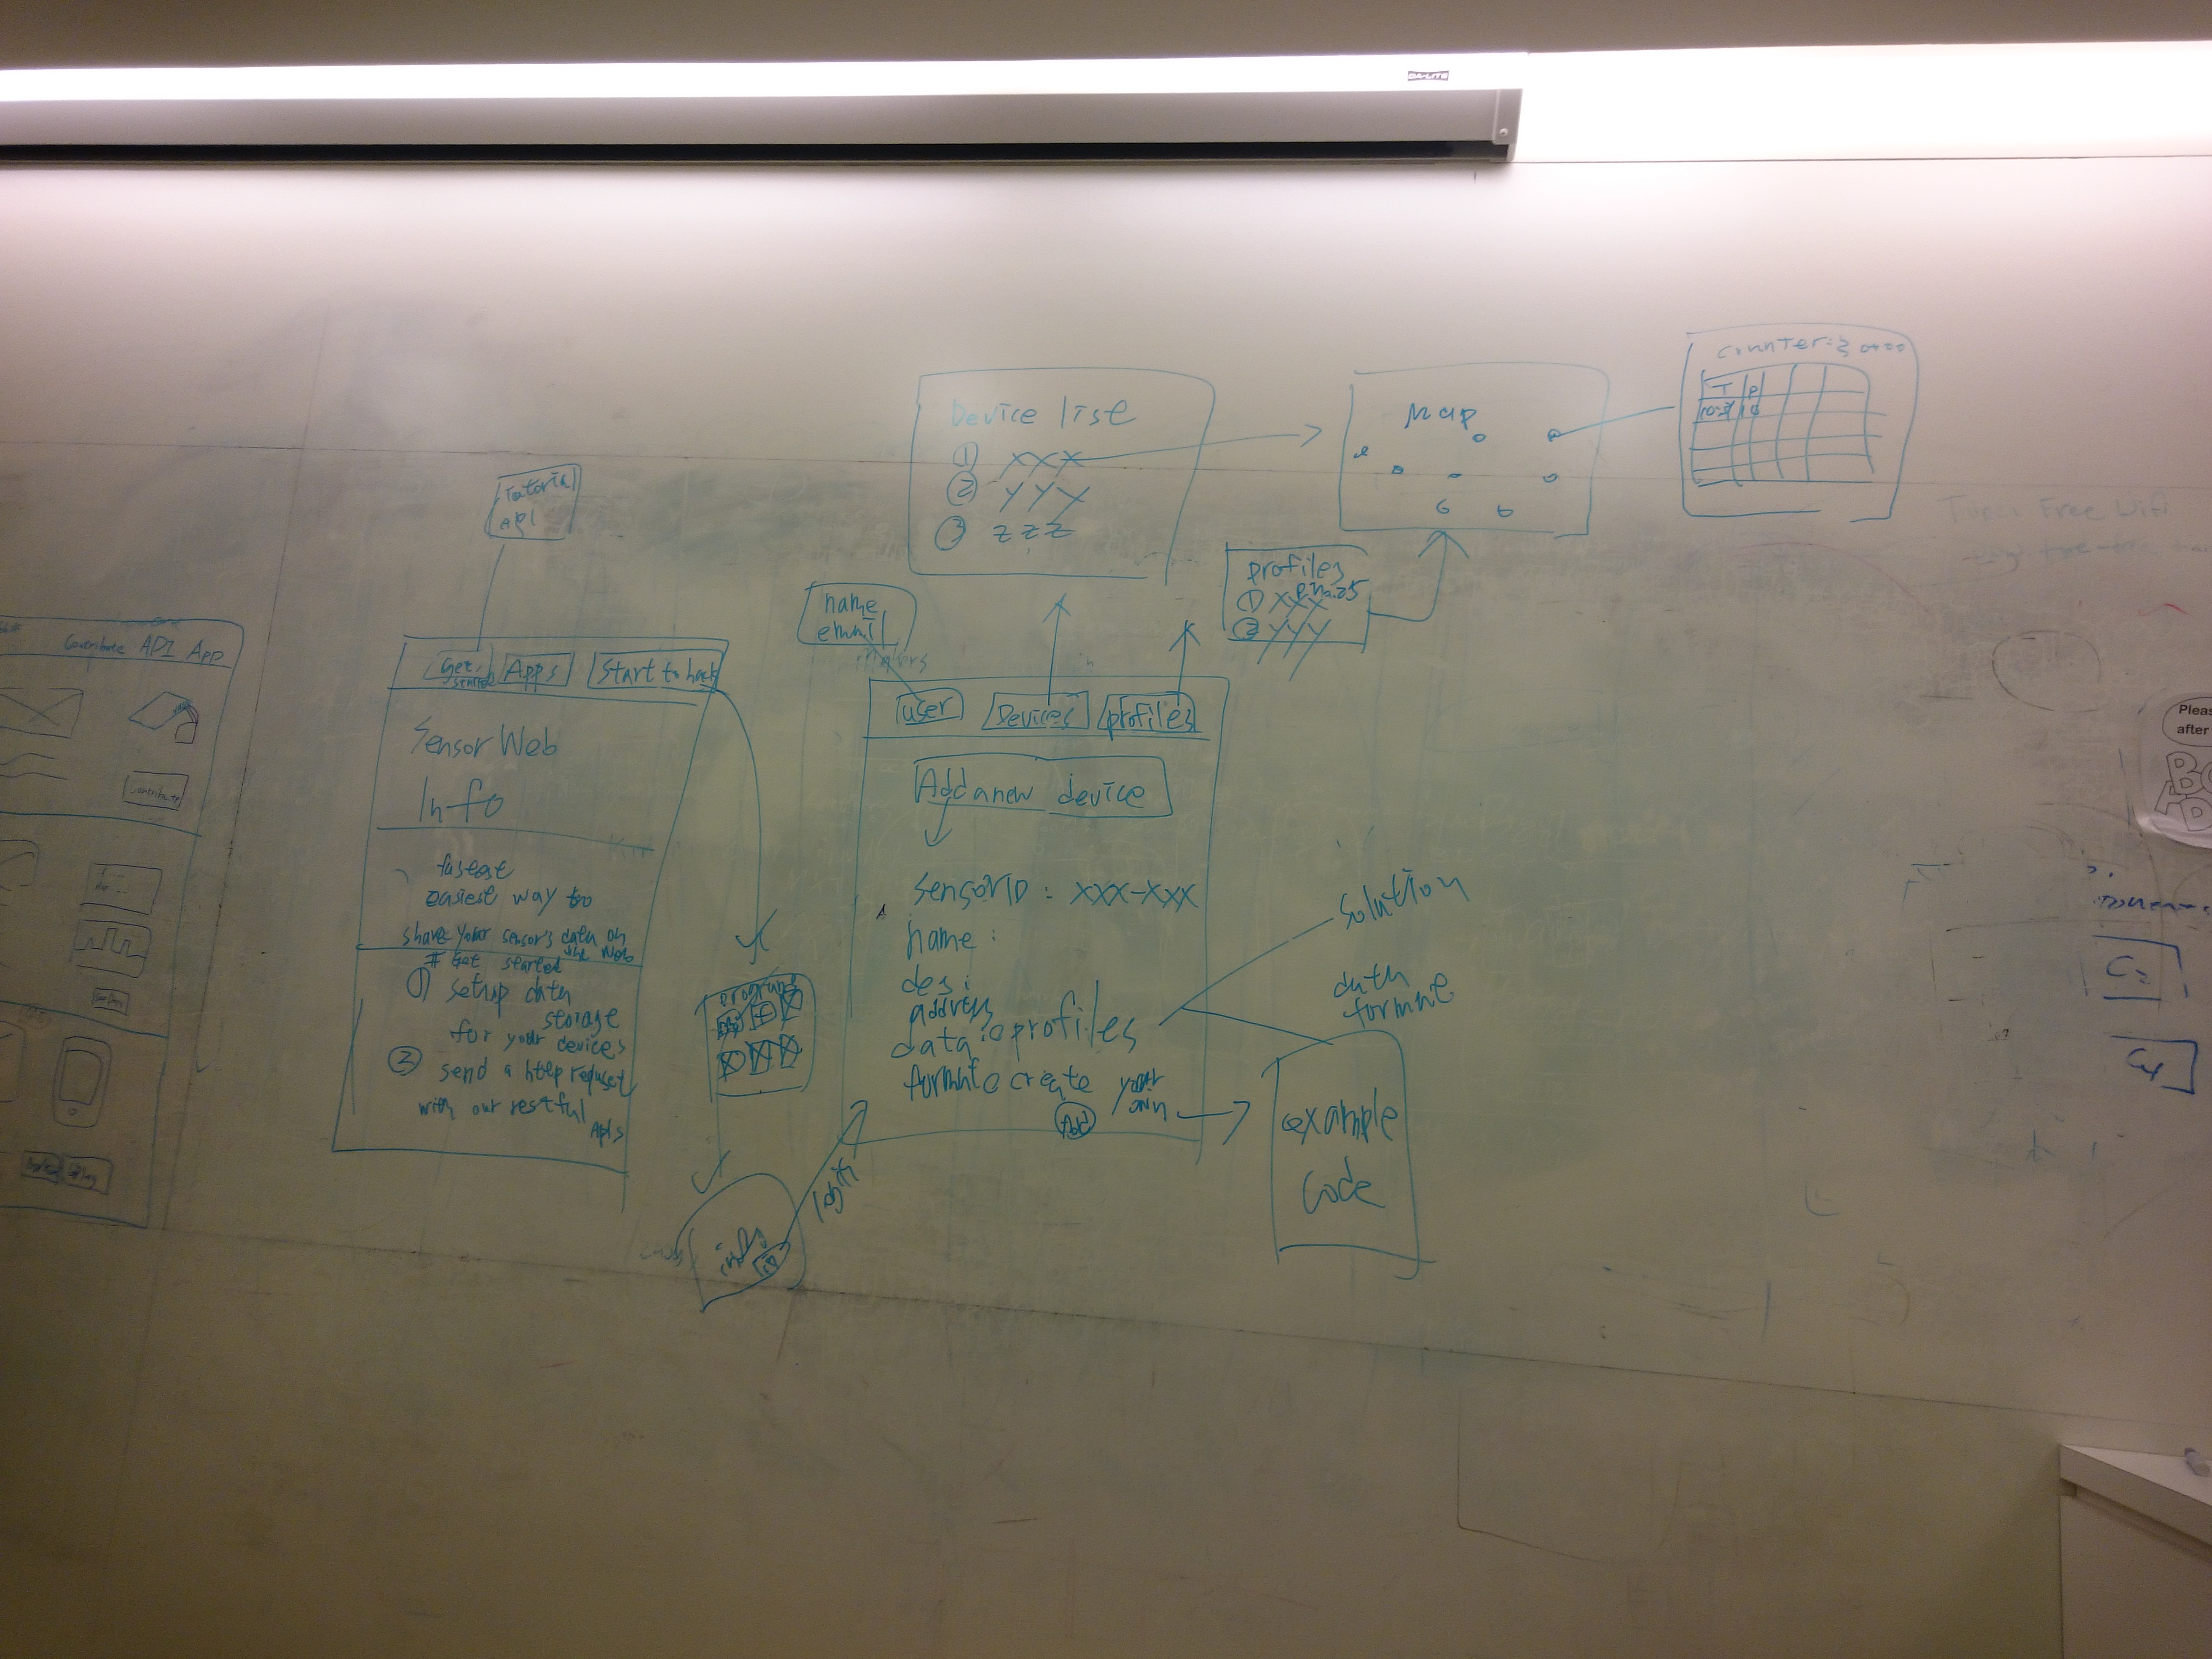 DA-LITE
Tutorial
API
Device list
① XXX
② YYY
③ ZZZ
Map
counter:
T P
profiles
① XXX
② YYY
name
email
Contribute API App
contribute
Get started
Apps
Start to hack
Sensor Web
Info
fastest
easiest way to
share your sensor's data on
the Web
# Get started
① setup data
storage
for your devices
② send a http request
with our restful
APIs
programs
login
user
Devices
profiles
Add a new device
sensorID : XXX-XXX
name :
des :
address
data : profiles
format create your
own
Add
solution
data
formate
example
code
Free Wifi
Pleas
after